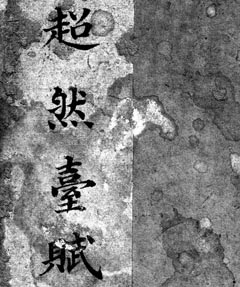 超然臺賦